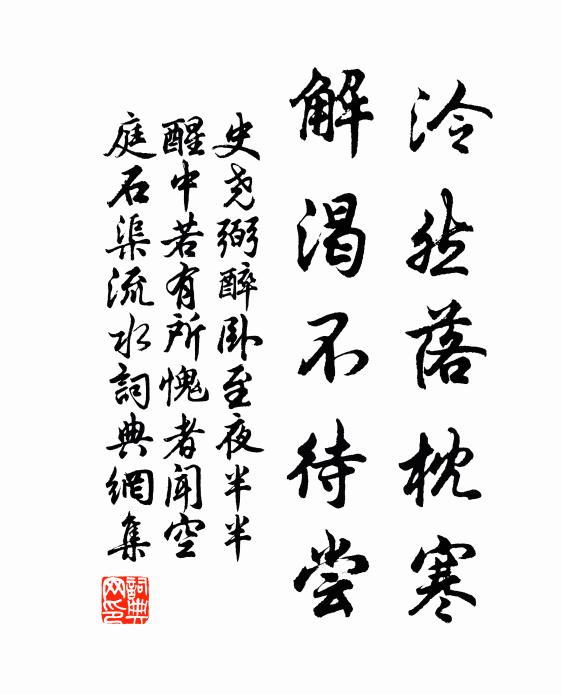 泠然落枕寒
解渴不待尝
史尧弼醉卧至夜半半
醒中若有所愧者闻空
庭石渠流水詞典網集
詞典
网印